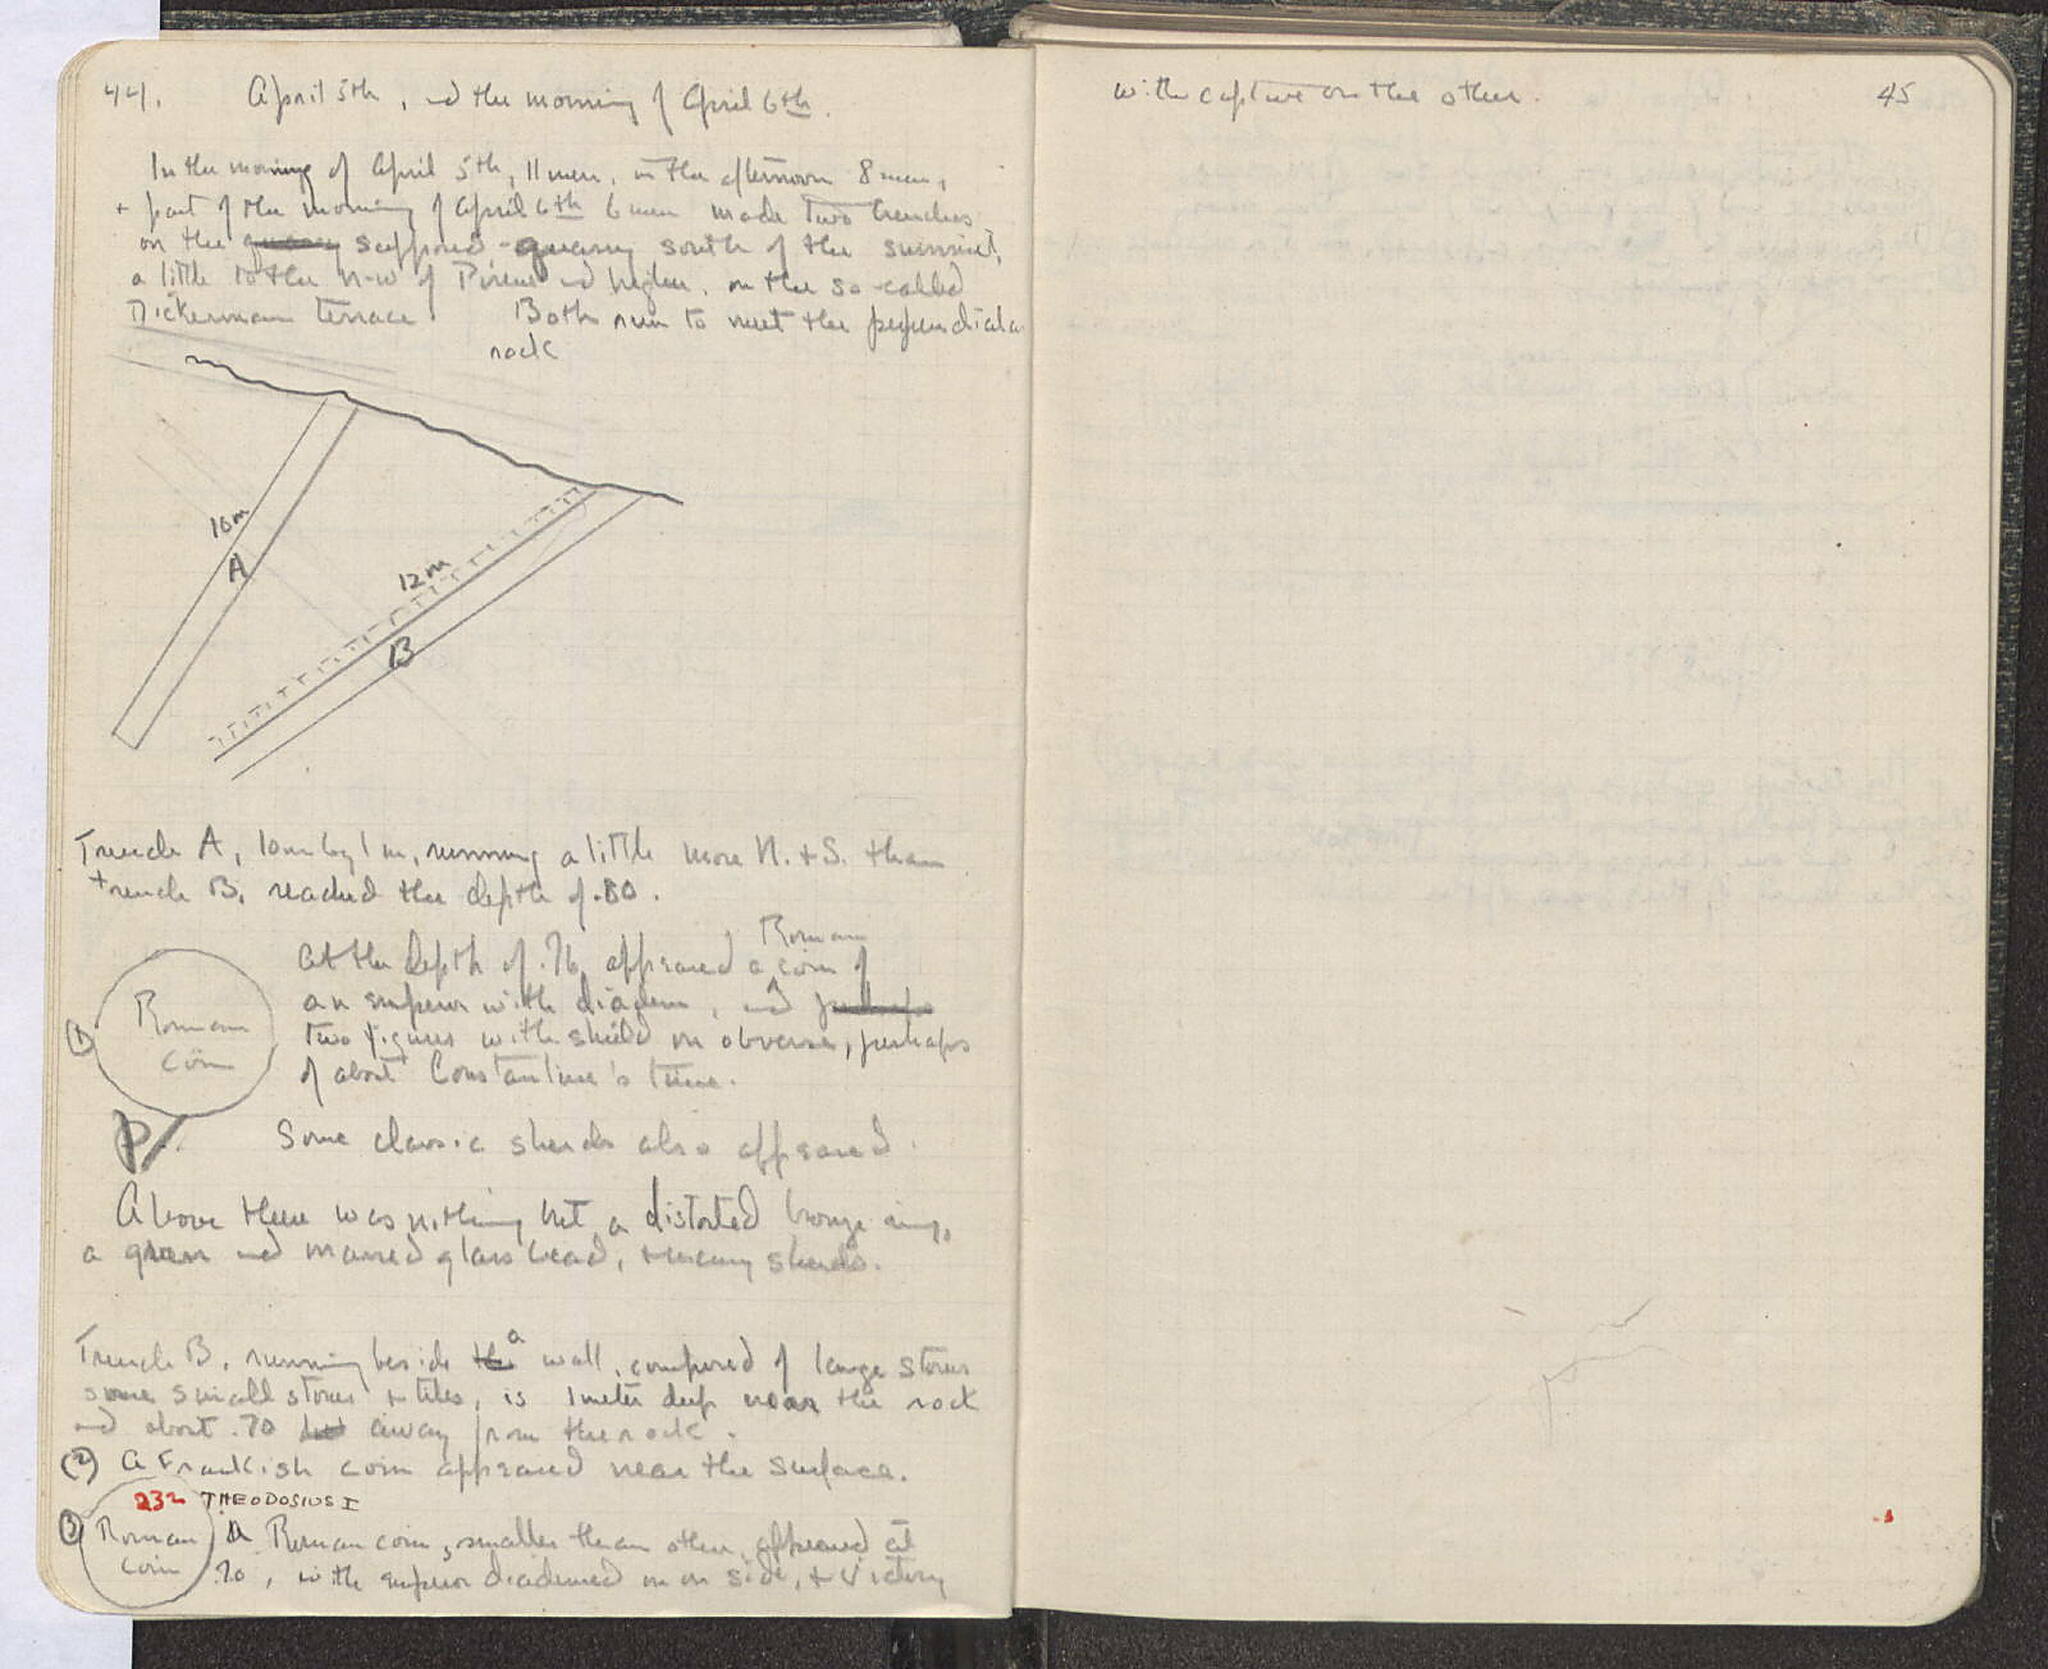 44. April 5th, and the morning of April 6th.
In the morning of April 5th, 11 men, in the afternoon 8 men,
+ part of the morning of April 6th 6 men made two trenches
on the quarry supposed quarry south of the summit,
a little to the N-W of Pirene and higher, on the so-called
Dickerman terrace. Both run to meet the perpendicular
rock
10m
A
12m
B
Trench A, 10m by 1m, running a little more N. + S. than
trench B. reached the depth of .80.
At the depth of .76 appeared a Roman coin of
an emperor with diadem, and perhaps
two figures with shield on obverse, perhaps
of about Constantine's time.
1
Roman
coin
P/.
Some classic sherds also appeared.
Above there was nothing but a distorted bronze ring,
a green and marred glass bead, + many sherds.
Trench B, running beside the a wall, composed of large stones
some small stones + tiles, is 1 meter deep near the rock
and about .70 away from the rock.
(2) A Frankish coin appeared near the surface.
232 THEODOSIUS I
3 Roman
coin
A Roman coin, smaller than other, appeared at
.70, with emperor diademed on on side, + Victory
45
with captive on the other.